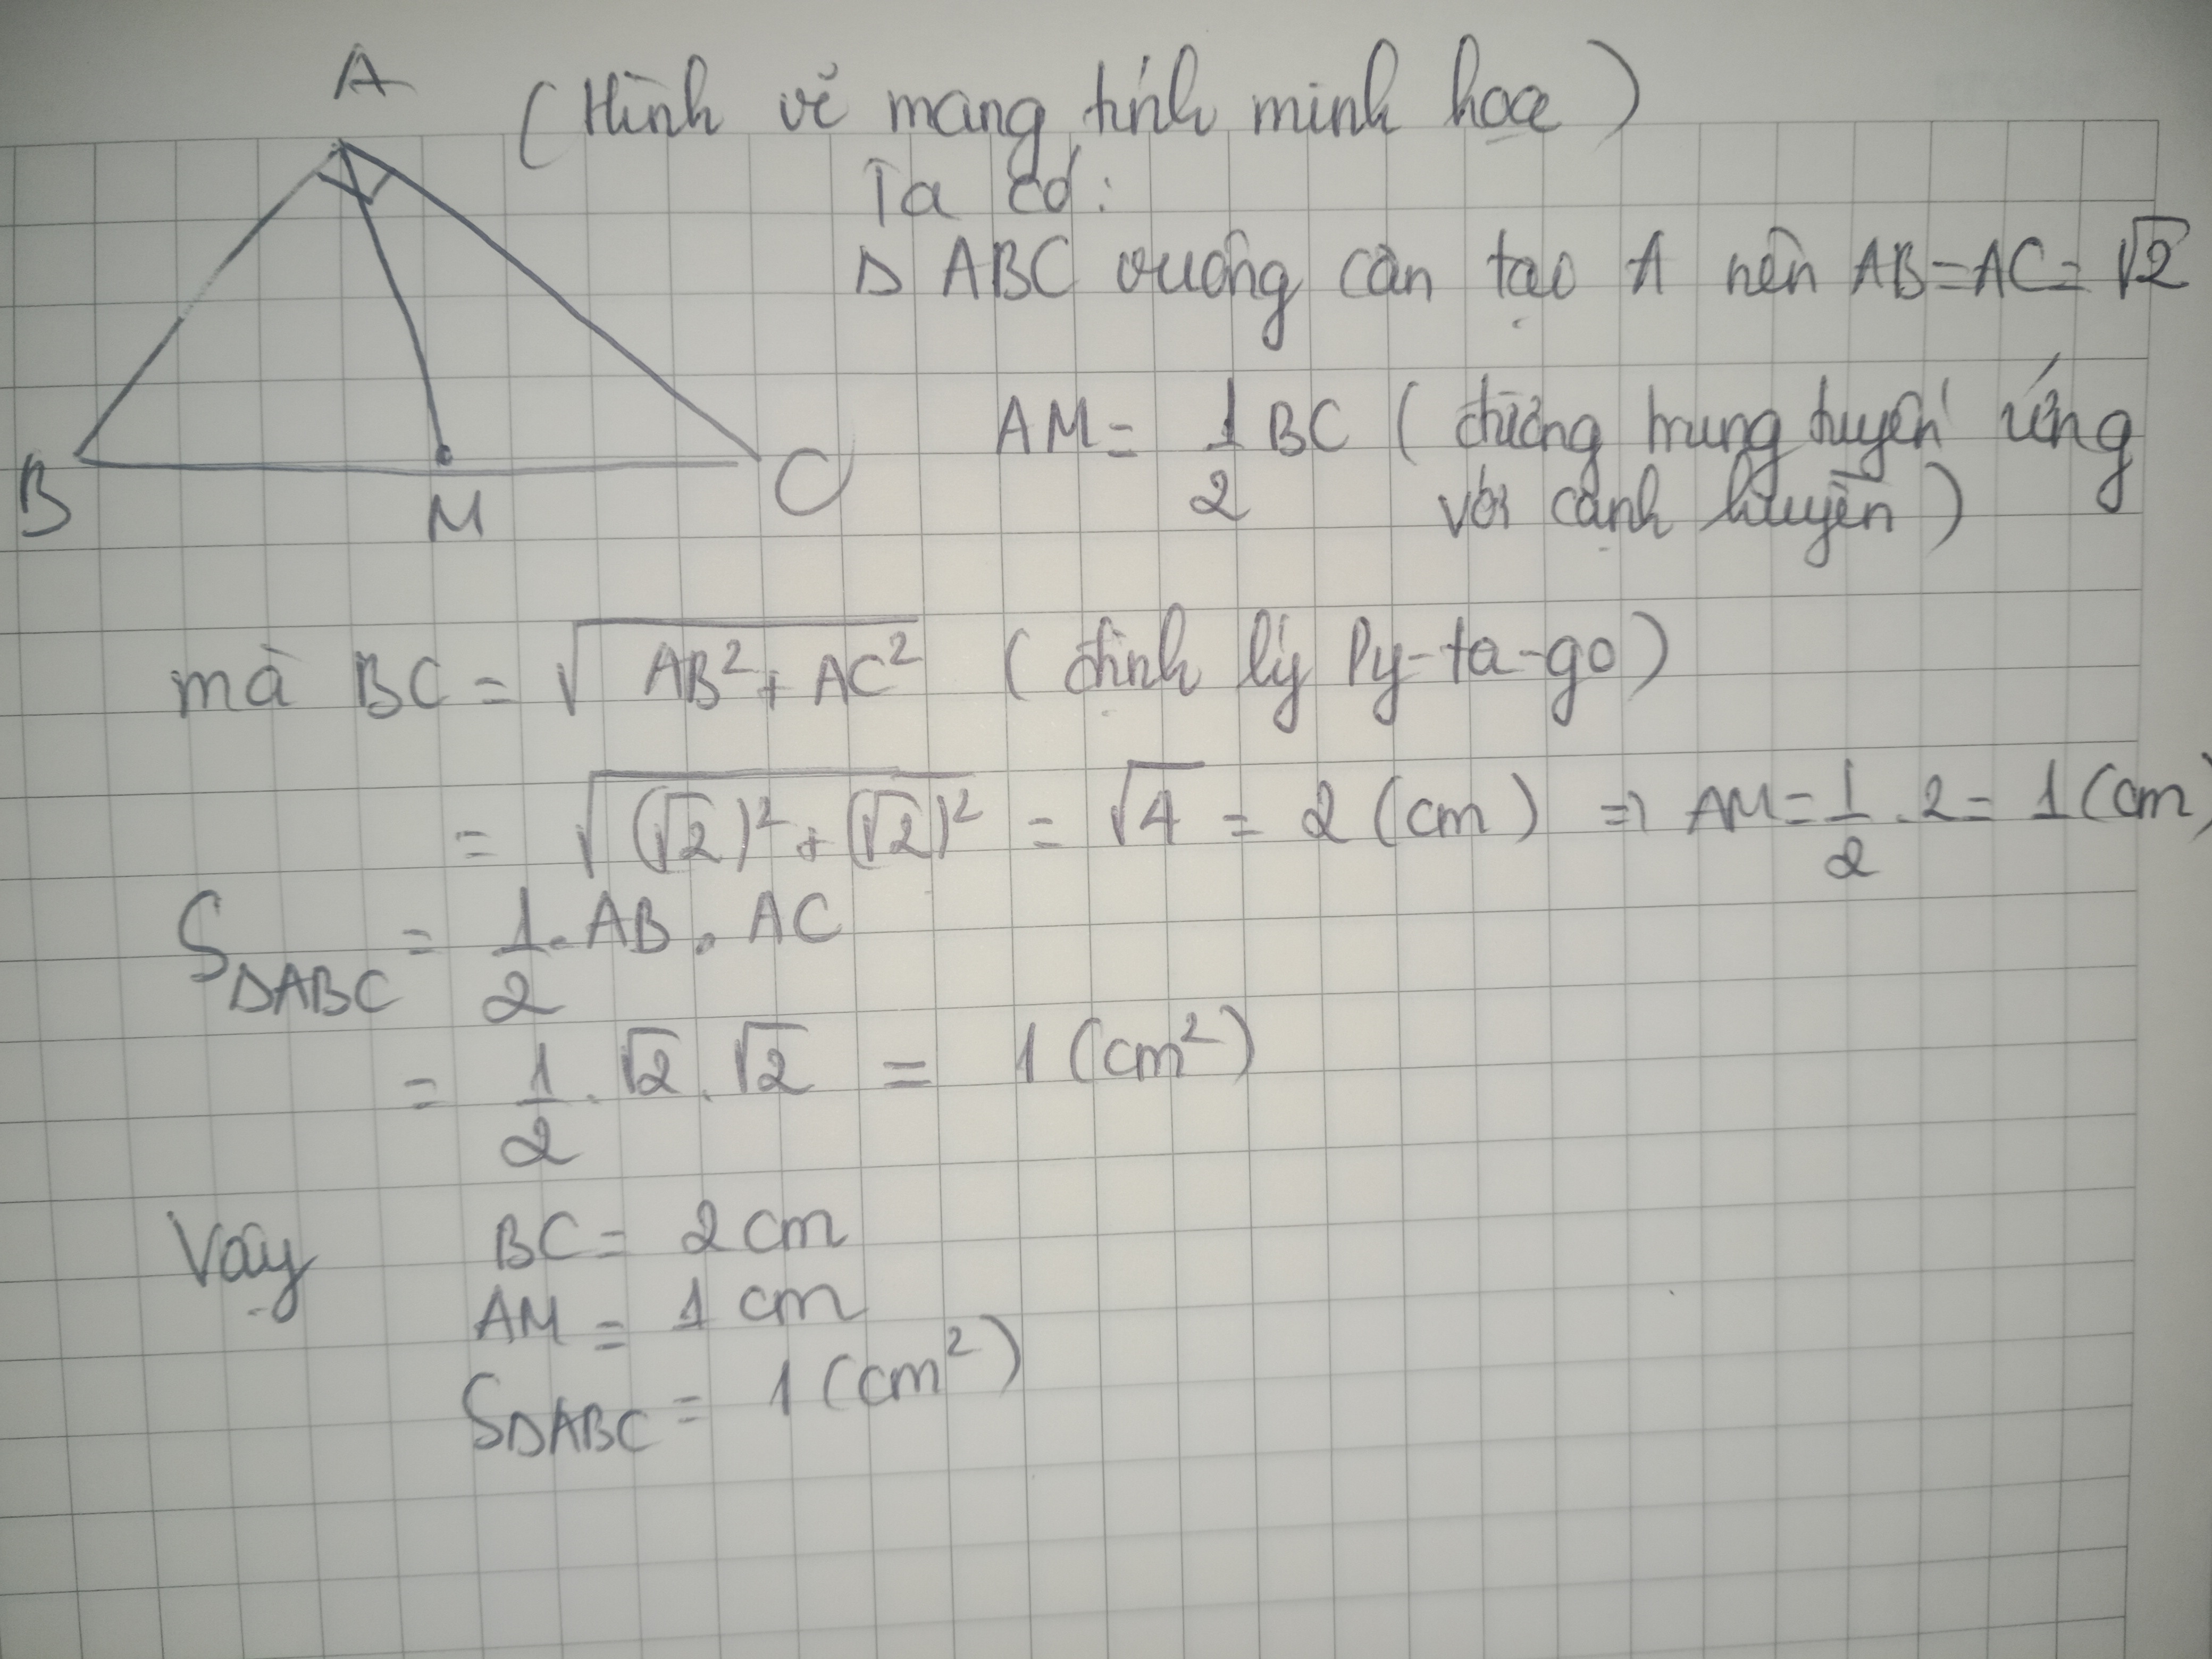 A
(Hình vẽ mang tính minh hoạ)
Ta có:
Δ ABC vuông cân tại A nên AB=AC=√2
AM = 1/2 BC (đường trung tuyến ứng
với cạnh huyền)
B
M
C
mà BC = √(AB² + AC²) (định lý Py-ta-go)
= √((√2)² + (√2)²) = √4 = 2 (cm) ⇒ AM = 1/2 . 2 = 1 (cm)
SΔABC = 1/2 . AB . AC
= 1/2 . √2 . √2 = 1 (cm²)
Vậy BC = 2 cm
AM = 1 cm
SΔABC = 1 (cm²)